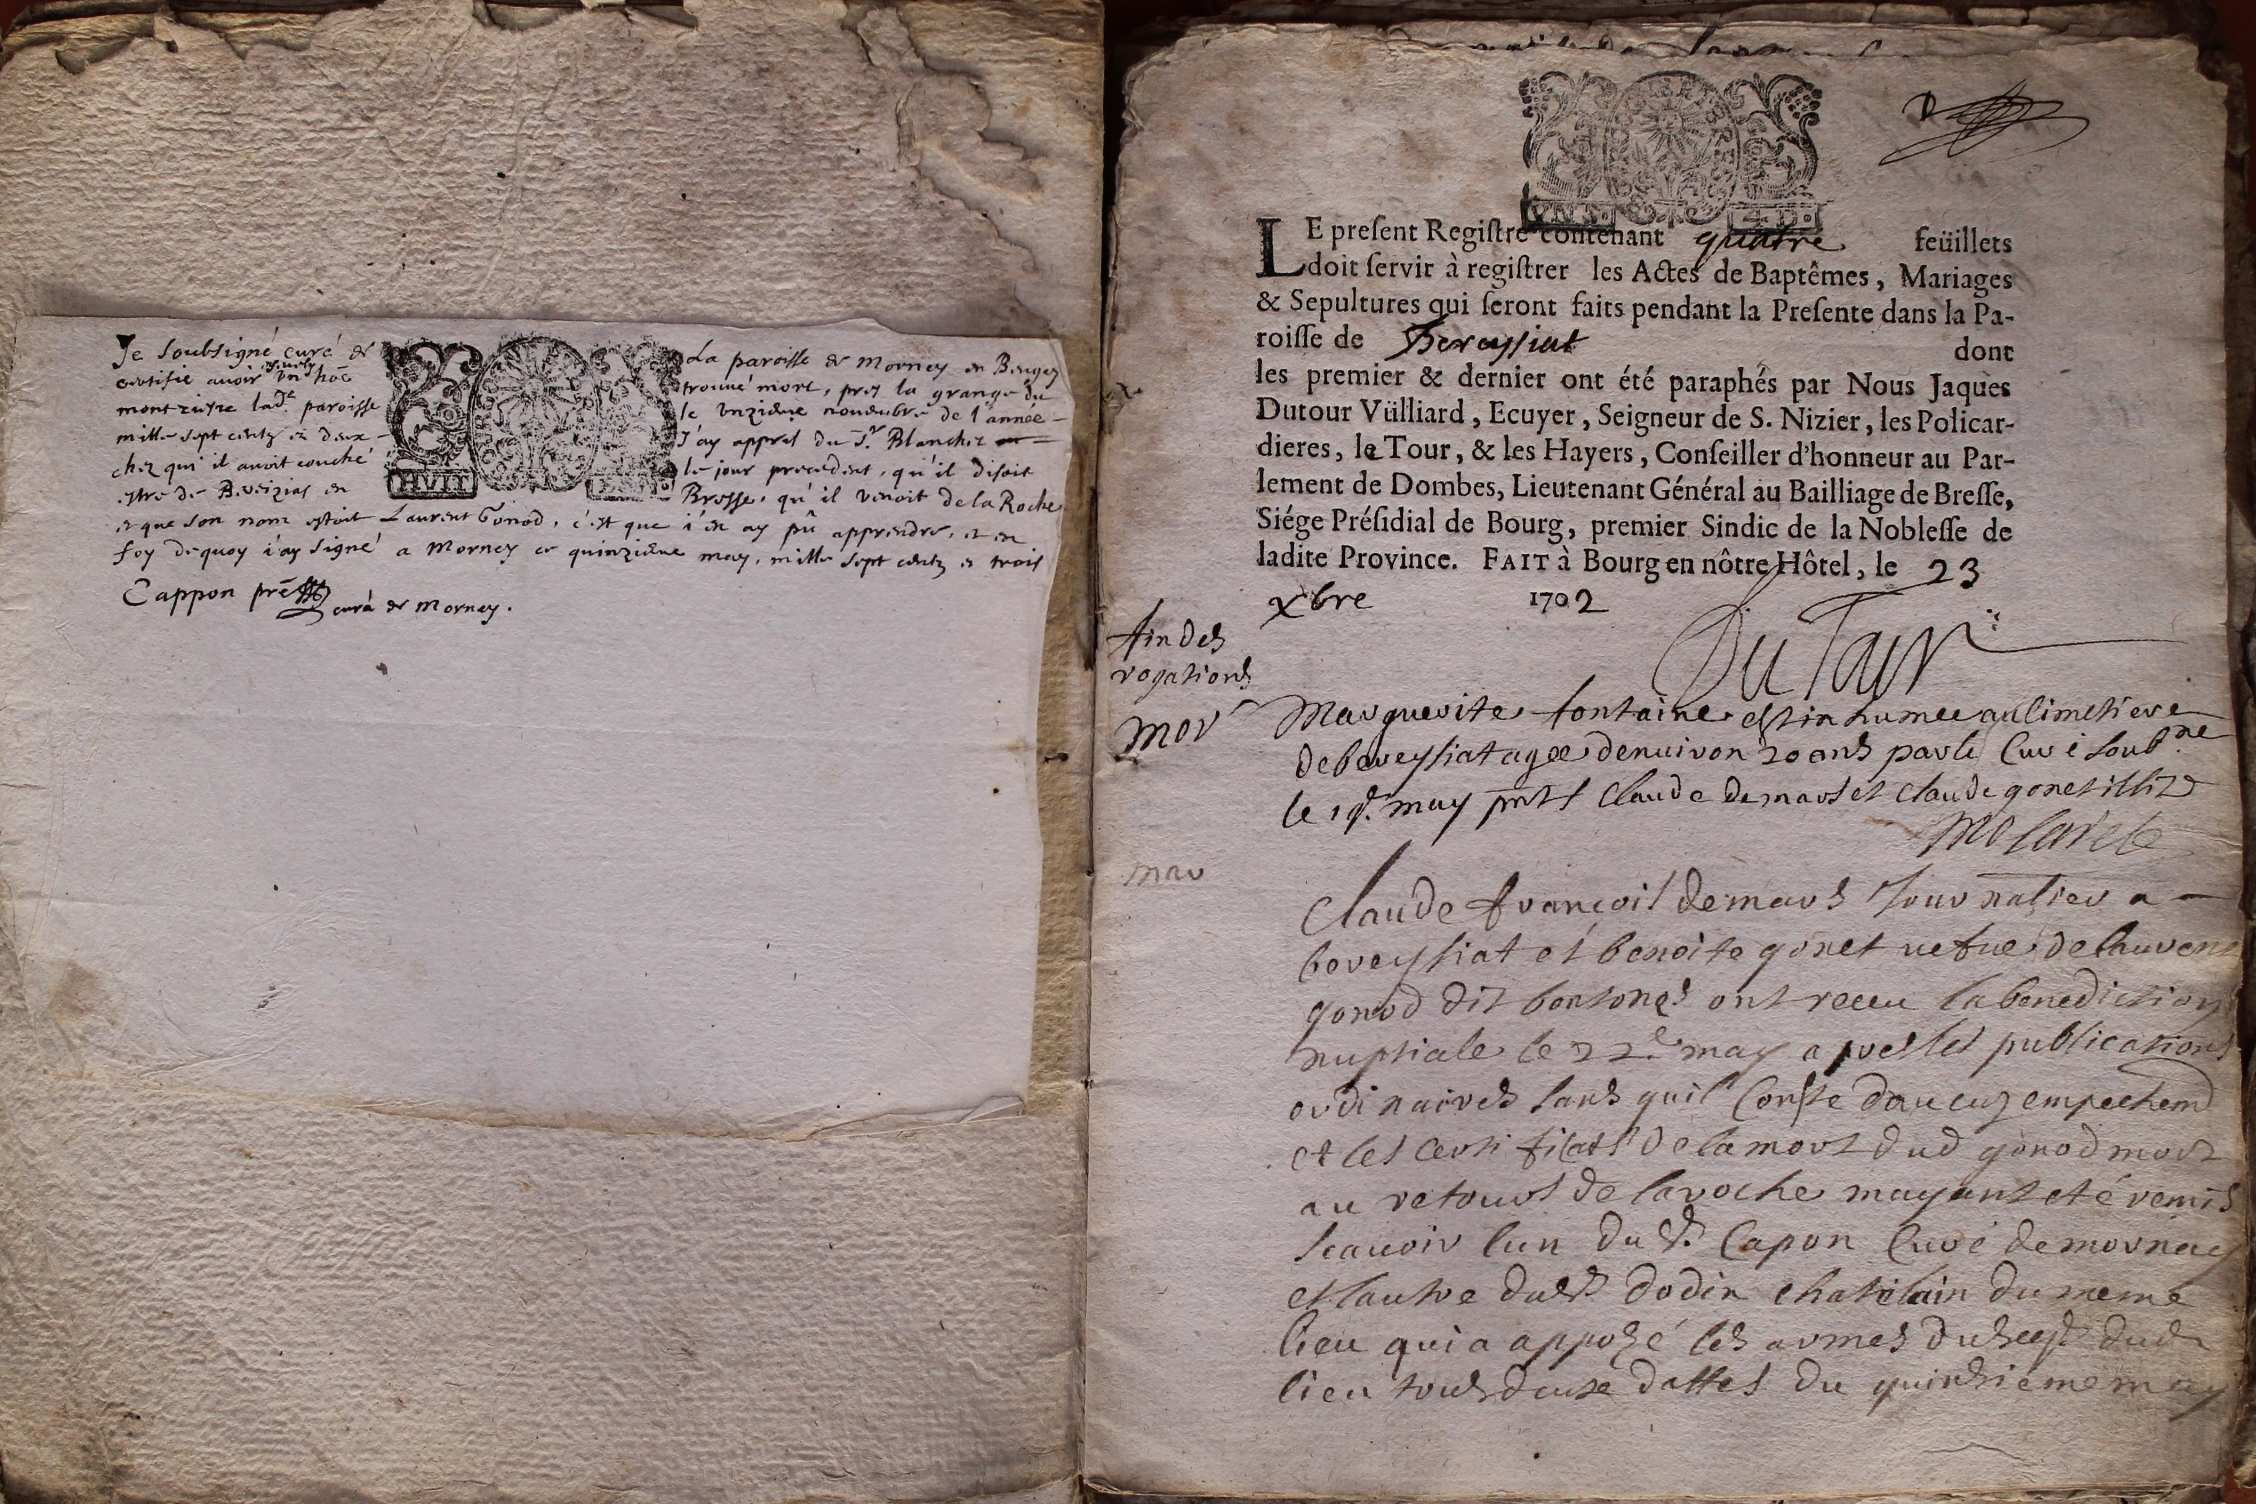 Je soubsigné curé de la paroisse de Mornay en Bugey
certifie avoir enterré un hoe trouvé mort, prez la grange du
mont rivyre lad.e paroisse le unzieme novembre de l'année
mille sept centz et deux J'ay appres du Sr Blanchet
chez qui il avoit couché le jour precedent, qu'il disoit
estre de Beveizias en Bresse, qu'il venoit de la Roche
et que son nom estoit Laurent Gonod, c'est que i'en ay pû apprendre, et en
foy dequoy i'ay signé a Mornay ce quinzieme may, mille sept centz et trois
Cappon pre
curé de Mornay.
HVIT
LE present Registre contenant quatre feüillets
doit servir à registrer les Actes de Baptêmes, Mariages
& Sepultures qui seront faits pendant la Presente dans la Pa-
roisse de Bereysiat dont
les premier & dernier ont été paraphés par Nous Jaques
Dutour Vülliard, Ecuyer, Seigneur de S. Nizier, les Policar-
dieres, le Tour, & les Hayers, Conseiller d'honneur au Par-
lement de Dombes, Lieutenant Général au Bailliage de Bresse,
Siége Présidial de Bourg, premier Sindic de la Noblesse de
ladite Province. FAIT à Bourg en nôtre Hôtel, le 23
xbre 1702
DuTour
fin des
rogations
mor
Marguerite fontaine est inhumee au Cimetiere
de bereysiat agee denuiron 20 ans par le Curé soub.ne
le 19. may pnts Claude demars et Claude gonet illit
mar
Claude françois demars Journalier a
bereysiat et benoite gonet uefue de laurent
gonod dit ont receu la benediction
nuptiale le 22.e may apres les publications
ordinaires sans quil Conste daucun empechem
et les certificats de la mort dud gonod mort
au retour de la roche mayant eté remis
scauoir lun du Sr. Capon Curé de mornay
et lautre du Sr. dodin chatelain du meme
lieu qui a apposé les armes du seigr dud
lieu tous deux dattes du quinsieme may